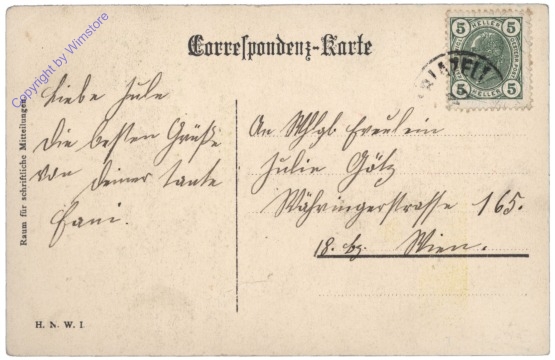 Copyright by Wimstore
Correspondenz-Karte
5 HELLER 5
5 HELLER 5
Raum für schriftliche Mitteilungen.
Liebe Jule
Die besten Grüße
von deiner tante
Fani.
An Wohlgb Freulein
Julie Götz
Währingerstrasse 165.
18. bz. Wien.
H. N. W. I.